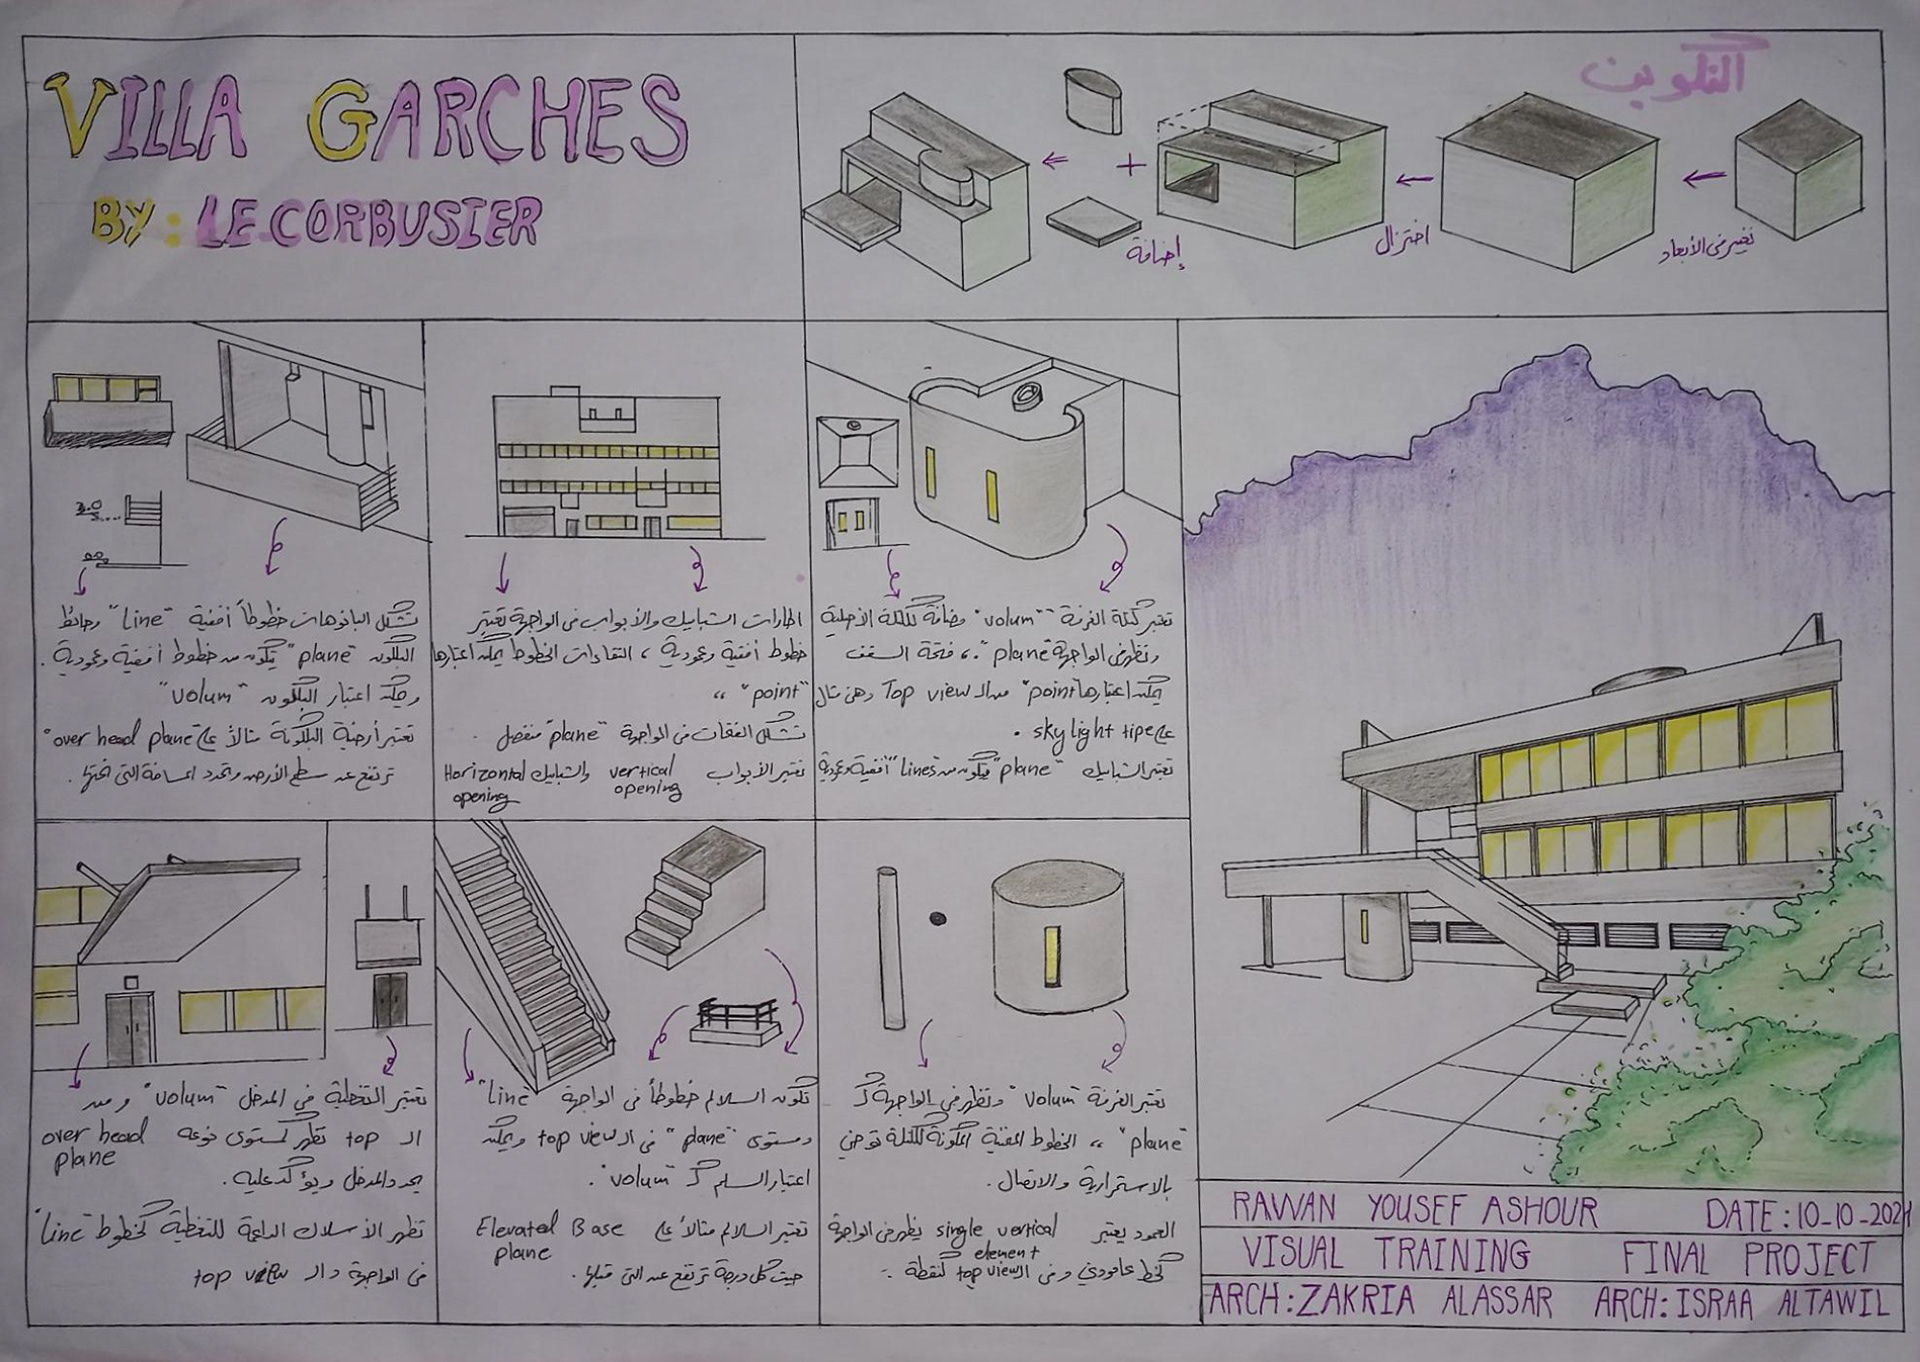 VILLA GARCHES
BY: LE CORBUSIER
التكوين
تغير في الأبعاد
اختزال
إضافة
تشكل البانوهات خطوطاً أفقية "line" وحائط
البلكون "plane" يتكون من خطوط أفقية وعمودية.
ويمكن اعتبار البلكون "volum"
تعتبر أرضية البلكونة مثالاً على over head plane"
ترتفع عن سطح الأرض وتحدد المساحة التي تحتها.
اطارات الشبابيك والأبواب في الواجهة تعتبر
خطوط أفقية وعمودية، التقاءات الخطوط يمكن اعتبارها
"point" ،،
تشكل الفتحات في الواجهة "plane" منفصل.
تعتبر الأبواب vertical opening والشبابيك Horizontal opening
تعتبر كتلة الغرفة "volum" مضافة للكتلة الأصلية
وتظهر في الواجهة "plane".، فتحة السقف
يمكن اعتبارها "point" من الـ Top view وهي مثال
على sky light tipe.
تعتبر الشبابيك "plane" يتكون من "lines" أفقية وعمودية
تعتبر التغطية في المدخل "volum" ومن
الـ top تظهر كمستوى فوقه over head plane
يحدد المدخل ويؤكد عليه.
تظهر الأسلاك الداعمة للتغطية كخطوط "line"
في الواجهة والـ top view
تكون السلالم خطوطاً في الواجهة "line"
ومستوى "plane" في الـ top view ويمكن
اعتبار السلم كـ "volum".
تعتبر السلالم مثالاً على Elevated Base plane
حيث كل درجة ترتفع عن التي قبلها.
تعتبر الغرفة "volum" وتظهر في الواجهة كـ
"plane" ،، الخطوط المكونة للكتلة توحي
بالاستمرارية والاتصال.
العمود يعتبر single vertical element يظهر في الواجهة
كخط عامودي وفي الـ top view كنقطة.
RAWAN YOUSEF ASHOUR DATE: 10-10-2021
VISUAL TRAINING FINAL PROJECT
ARCH: ZAKRIA ALASSAR ARCH: ISRAA ALTAWIL